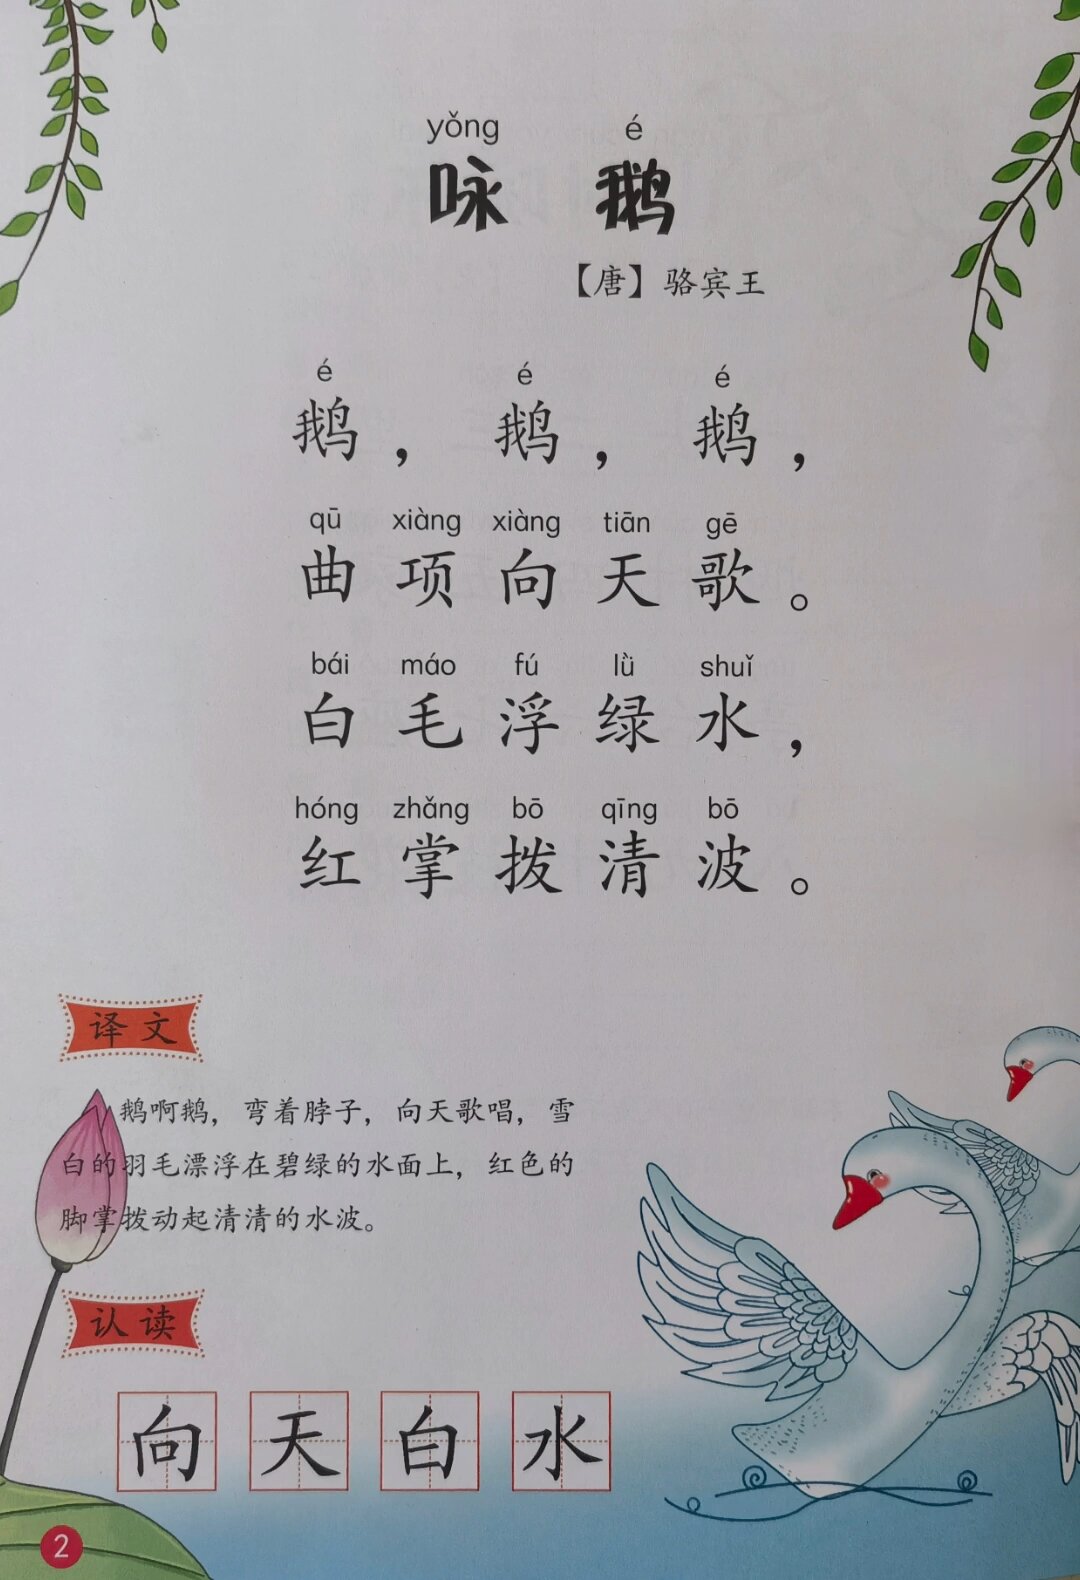 yǒng é
咏 鹅
【唐】骆宾王
é é é
鹅，鹅，鹅，
qū xiàng xiàng tiān gē
曲项向天歌。
bái máo fú lǜ shuǐ
白毛浮绿水，
hóng zhǎng bō qīng bō
红掌拨清波。
译文
鹅啊鹅，弯着脖子，向天歌唱，雪
白的羽毛漂浮在碧绿的水面上，红色的
脚掌拨动起清清的水波。
认读
向 天 白 水
2